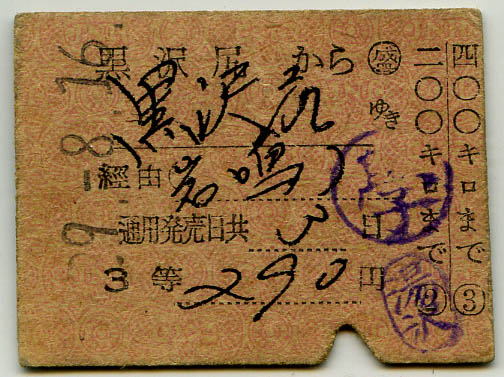 29.-8.16
黒沢尻から㊥盛
黒沢尻
ゆき
経由 岩
通用発売日共 3 日
3等 290 円
二〇〇キロまで②
四〇〇キロまで③